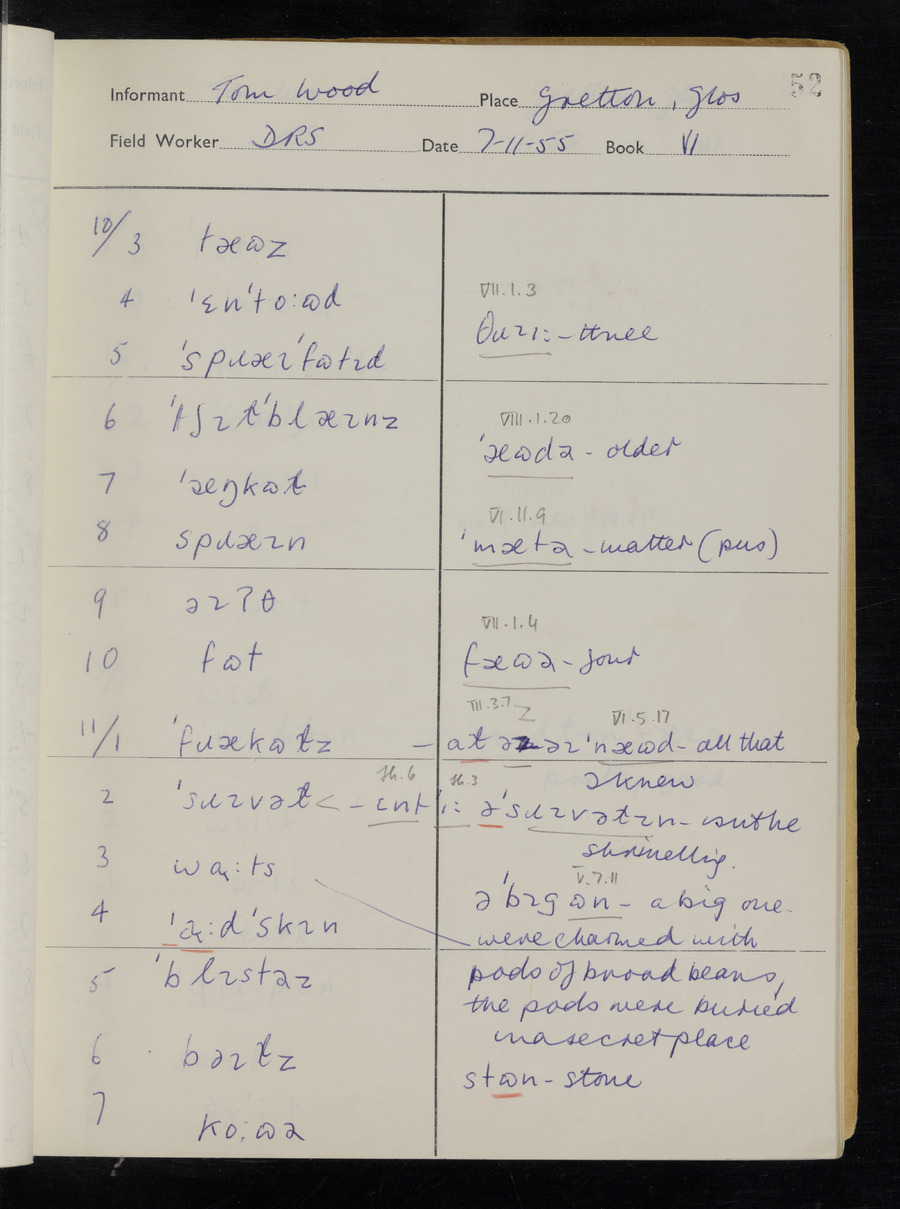 52
Informant Tom Wood Place Gretton, Glos
Field Worker DRS Date 7-11-55 Book VI
10/3 tæɷz
4 'ɛn'to:ɷd
5 'spɹæɪ'fɷtɪd
6 'tʃɪɫ'blæɪnz
7 'æŋkɷɫ
8 spɹæɪn
9 əɪʔθ
10 fɷt
11/1 'fɹækɷɫz
2 'sɹɪvəɫ < – ɪnt
3 wɑ:ts
4 'ɑ:d'skɪn
5 'blɪstəz
6 bəɪɫz
7 ko:ɷə
VII.1.3
θɹɪ: – three
VIII.1.20
'æɷdə – older
VI.11.9
'mætə – matter (pus)
VII.1.4
fæɷə – four
VII.3.7 VI.5.17
– aɫ əɪ'næɷd – all that
I knew
Sh.6 Sh.3
i: ə'sɹɪvəɫɪn – isn't he
shrivelling.
V.7.11
ə'bɪgɷn – a big one.
were charmed with
pods of broad beans,
the pods were buried
in a secret place
stɷn – stone